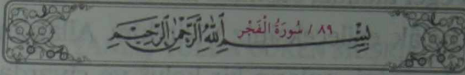 ٨٩ / سُورَةُ الْفَجْرِ
بِسْمِ اللَّهِ الرَّحْمَٰنِ الرَّحِيمِ